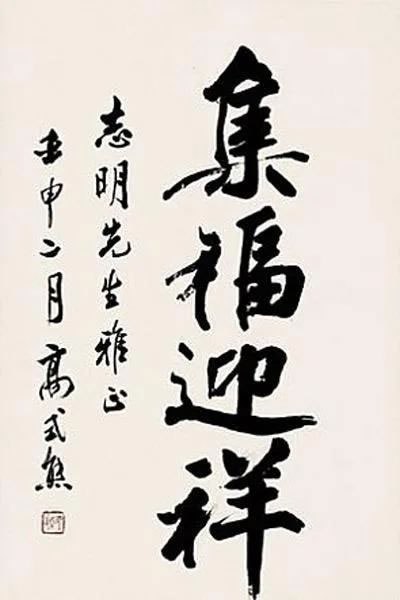 集福迎祥
志明先生雅正
壬申二月高式熊